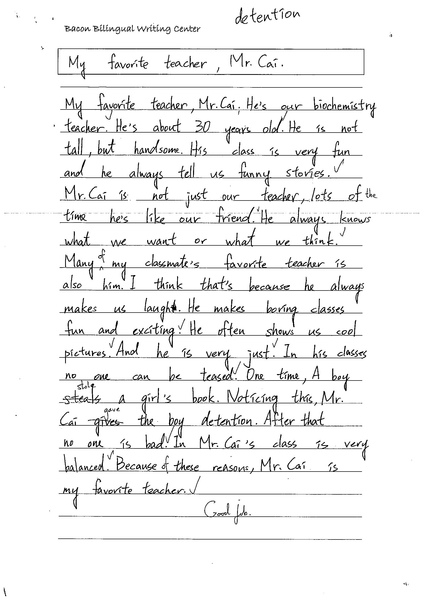 detention
Bacon Bilingual Writing Center
My favorite teacher, Mr. Cai.
My favorite teacher, Mr. Cai, He's our biochemistry
teacher. He's about 30 years old. He is not
tall, but handsome. His class is very fun
and he always tell us funny stories.
Mr. Cai is not just our teacher, lots of the
time he's like our friend. He always knows
what we want or what we think.
Many of my classmate's favorite teacher is
also him. I think that's because he always
makes us laugh. He makes boring classes
fun and exciting. He often shows us cool
pictures. And he is very just. In his classes
no one can be teased. One time, A boy
stole
steals a girl's book. Noticing this, Mr.
gave
Cai gives the boy detention. After that
no one is bad. In Mr. Cai's class is very
balanced. Because of these reasons, Mr. Cai is
my favorite teacher.
Good job.